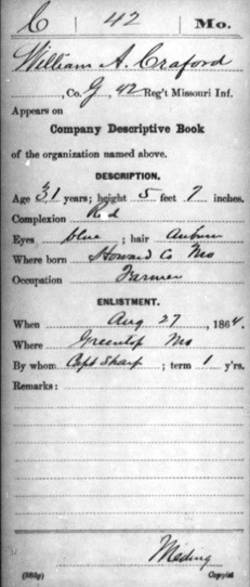 C 42 Mo.
William A. Craford
, Co. G, 42 Reg't Missouri Inf.
Appears on
Company Descriptive Book
of the organization named above.
DESCRIPTION.
Age 31 years; height 5 feet 7 inches.
Complexion Red
Eyes blue; hair Auburn
Where born Howard Co Mo
Occupation Farmer
ENLISTMENT.
When Aug 27, 1864.
Where Greentop Mo
By whom Capt Sharp; term 1 y'rs.
Remarks:
Meding
(383g) Copyist.